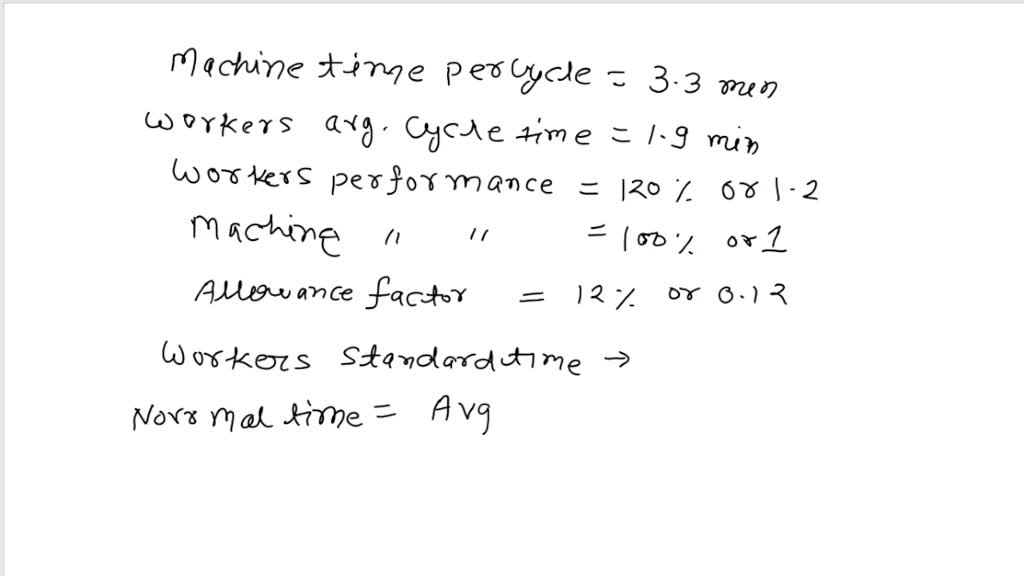 Machine time per cycle = 3.3 min
Workers avg. cycle time = 1.9 min
Workers performance = 120 % or 1.2
Machine " " = 100 % or 1
Allowance factor = 12 % or 0.12
Workers standard time →
Normal time = Avg